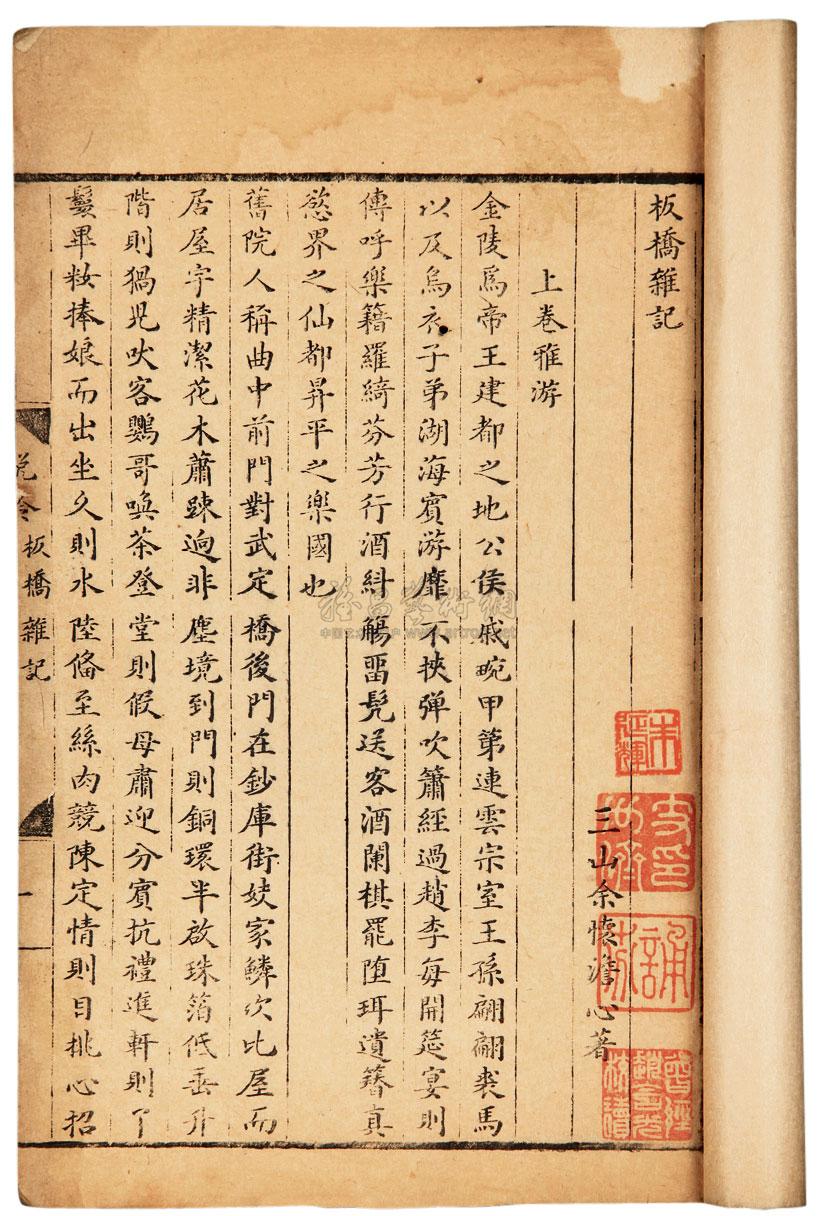 板橋雜記
三山余懷澹心著
上卷雅游
金陵爲帝王建都之地公侯戚畹甲第連雲宗室王孫翩翩裘馬
以及烏衣子弟湖海賓游靡不挾弹吹簫經過趙李每開筵宴則
傳呼樂籍羅綺芬芳行酒糾觴畱髠送客酒闌棋罷堕珥遺簪真
慾界之仙都昇平之樂國也
舊院人称曲中前門對武定橋後門在鈔庫街妓家鱗次比屋而
居屋宇精潔花木蕭踈逈非塵境到門則銅環半啟珠箔低垂升
階則猧児吠客鸚哥喚茶登堂則假母肅迎分賓抗禮進軒則丫
鬟畢妝捧娘而出坐久則水陸俻至絲肉競陳定情則目挑心招
說鈴 板橋雜記 一